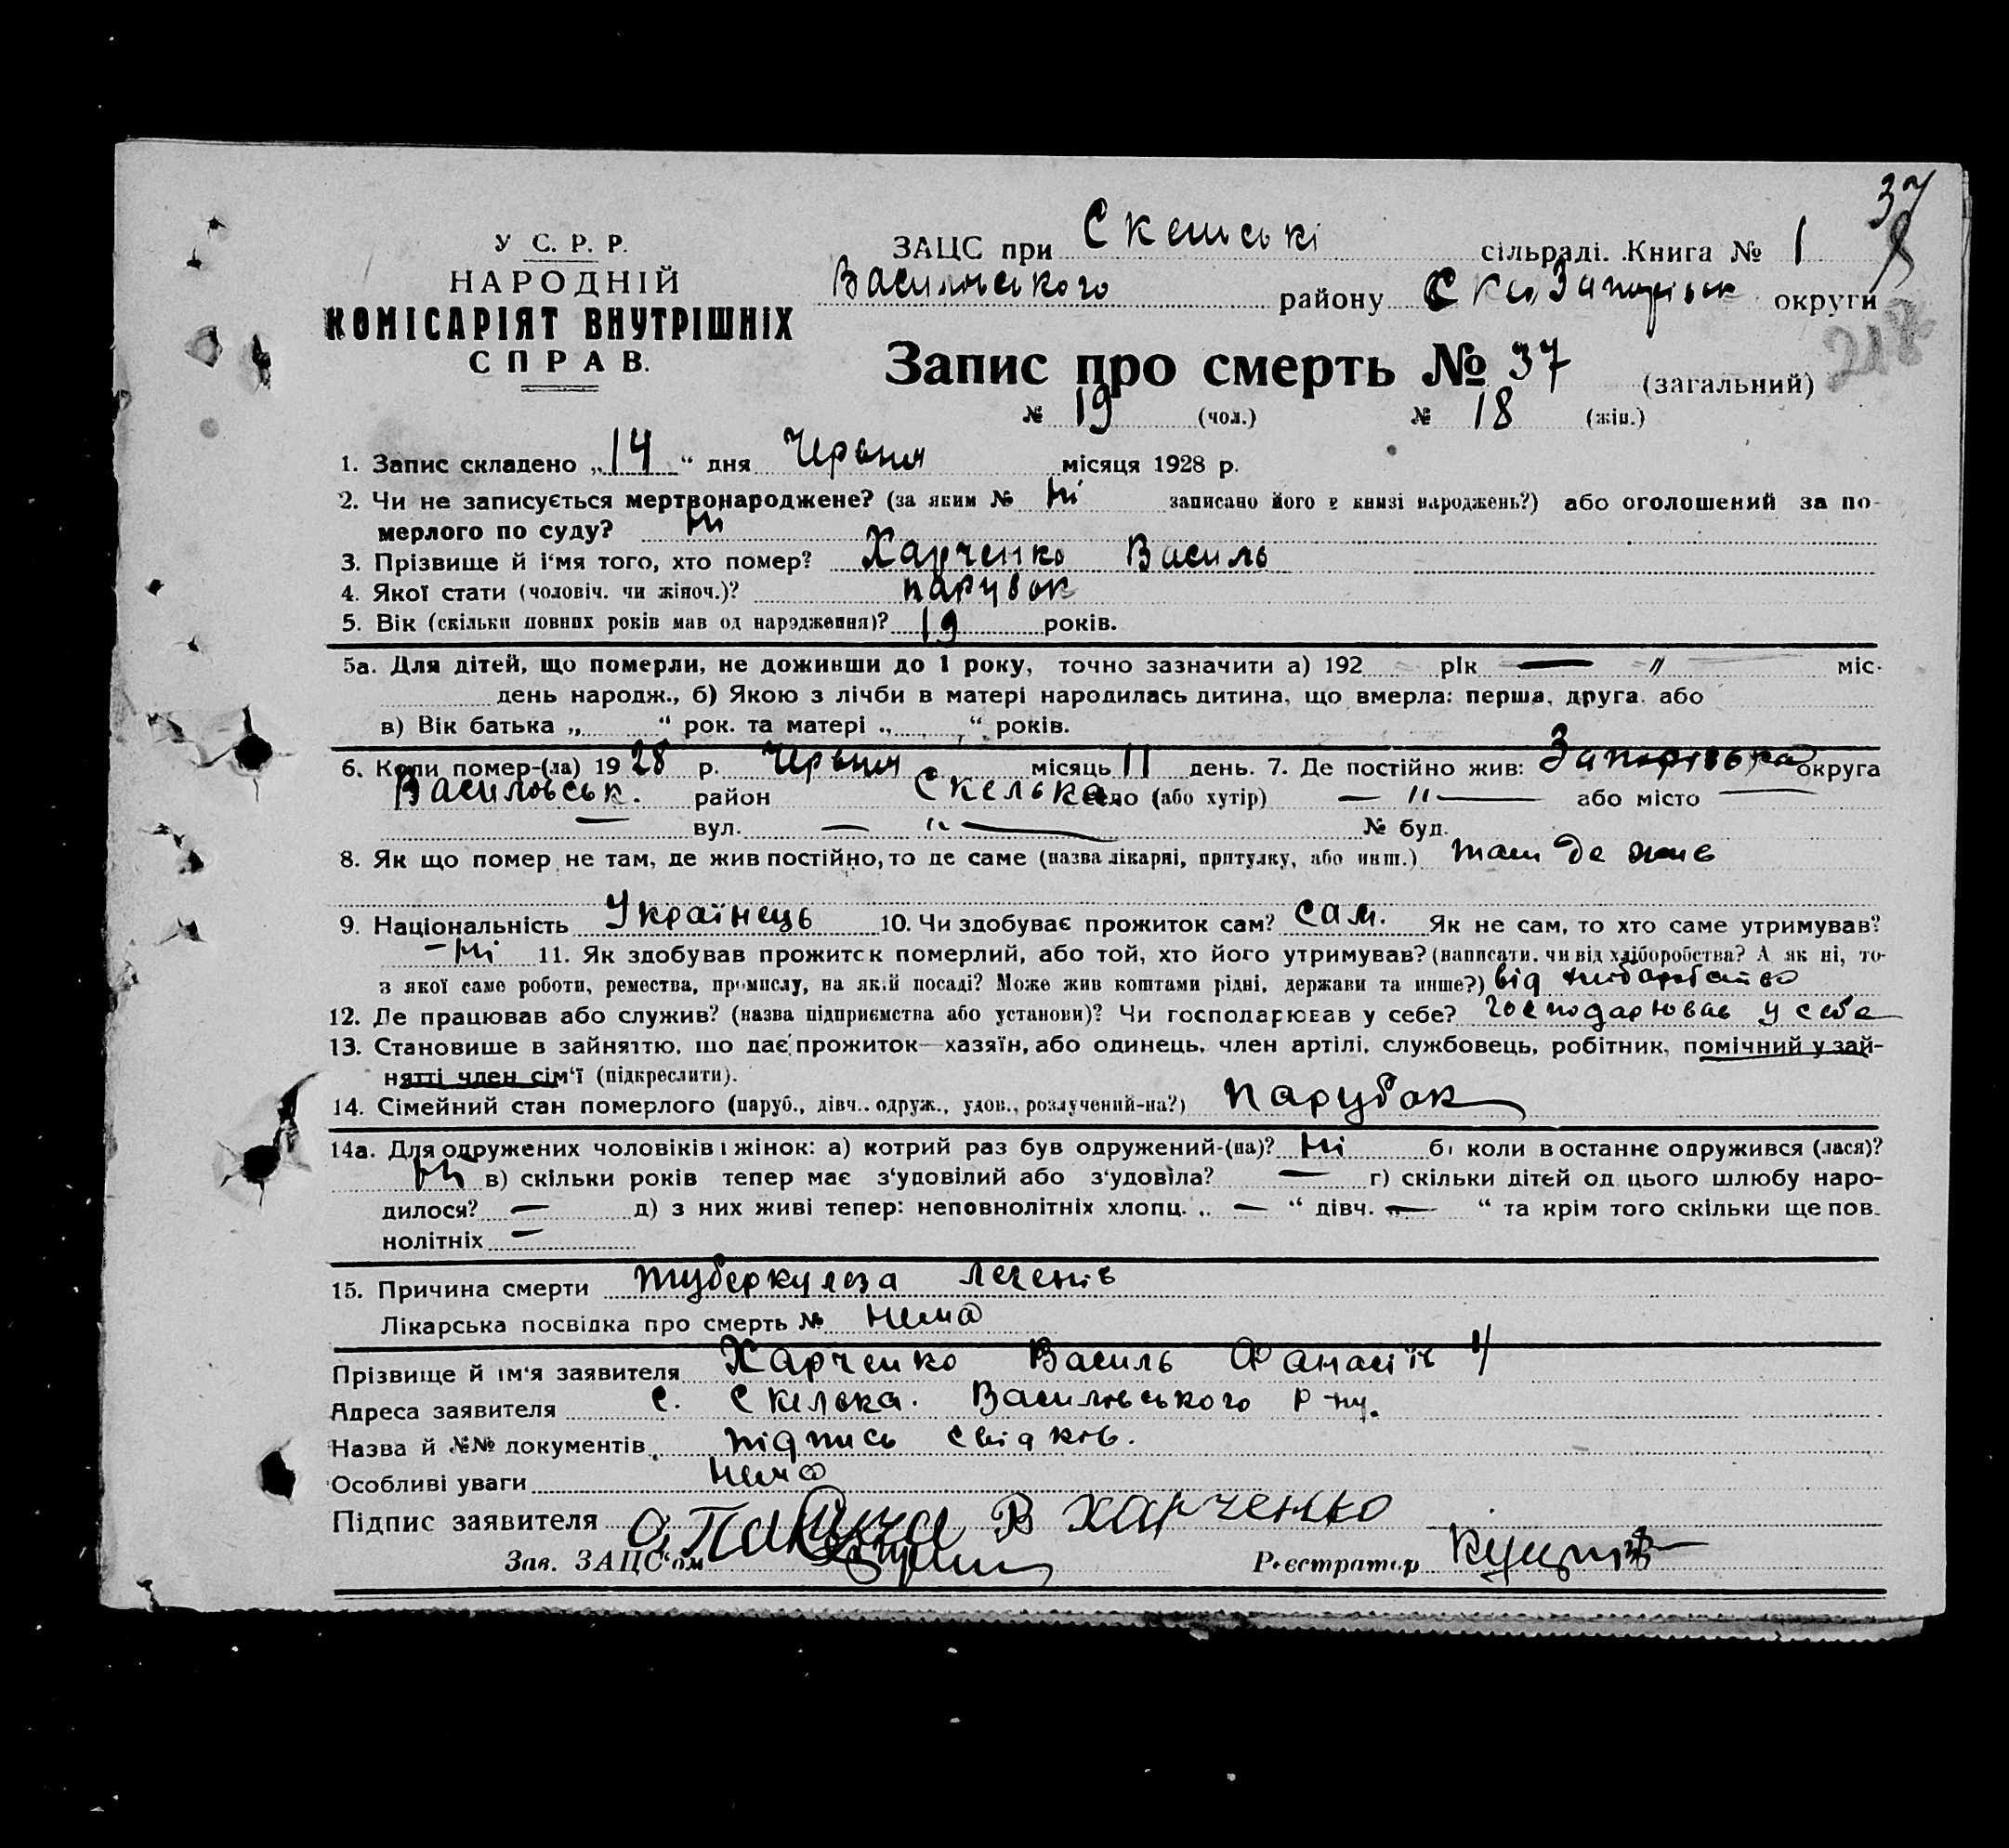 37
У С. Р. Р.
НАРОДНІЙ
КОМІСАРІЯТ ВНУТРІШНІХ
СПРАВ.
ЗАЦС при Скельські сільраді. Книга № 1
Василівського району Запоріськ округи
218
Запис про смерть № 37 (загальний)
№ 19 (чол.) № 18 (жін.)
1. Запис складено „14“ дня Червня місяця 1928 р.
2. Чи не записується мертвонароджене? (за яким № Ні записано його в книзі народжень?) або оголошений за по-
мерлого по суду? Ні
3. Прізвище й і‘мя того, хто помер? Харченко Василь
4. Якої стати (чоловіч. чи жіноч.)? парубок
5. Вік (скільки повних років мав од народження)? 19 років.
5а. Для дітей, що померли, не доживши до 1 року, точно зазначити а) 192 рік — „ міс.
день народж., б) Якою з лічби в матері народилась дитина, що вмерла: перша, друга, або
в) Вік батька „ “ рок. та матері „ “ років.
6. Коли помер-(ла) 1928 р. Червня місяць 11 день. 7. Де постійно жив: Запорізька округа
Василівськ. район Скелька село (або хутір) — „ — або місто —
— вул. — „ — № буд.
8. Як що помер не там, де жив постійно, то де саме (назва лікарні, притулку, або инш.) там де жив
9. Національність Українець 10. Чи здобуває прожиток сам? сам. Як не сам, то хто саме утримував?
— Ні 11. Як здобував прожиток померлий, або той, хто його утримував? (написати, чи від хліборобства? А як ні, то-
з якої саме роботи, ремества, промислу, на якій посаді? Може жив коштами рідні, держави та инше?) від
12. Де працював або служив? (назва підприємства або установи)? Чи господарював у себе? Господарював у себе
13. Становище в зайняттю, що дає прожиток—хазяїн, або одинець, член артілі, службовець, робітник, помічний у зай-
нятті член сім‘ї (підкреслити).
14. Сімейний стан померлого (паруб., дівч., одруж., удов., розлучений-на?) Парубок
14а. Для одружених чоловіків і жінок: а) котрий раз був одружений-(на)? Ні б) коли в останнє одружився (лася)?
Ні в) скільки років тепер має з‘удовілий або з‘удовіла? — г) скільки дітей од цього шлюбу наро-
дилося? — д) з них живі тепер: неповнолітніх хлопц. „ — “ дівч. — “ та крім того скільки ще пов-
нолітніх —
15. Причина смерти туберкулеза легенів
Лікарська посвідка про смерть № нема
Прізвище й ім‘я заявителя Харченко Василь Фанасіїв
Адреса заявителя с. Скелька. Василівського р-ну.
Назва й №№ документів підпись свідків.
Особливі уваги нема
Підпис заявителя В Харченко
Зав. ЗАЦС‘ом
Реєстратор